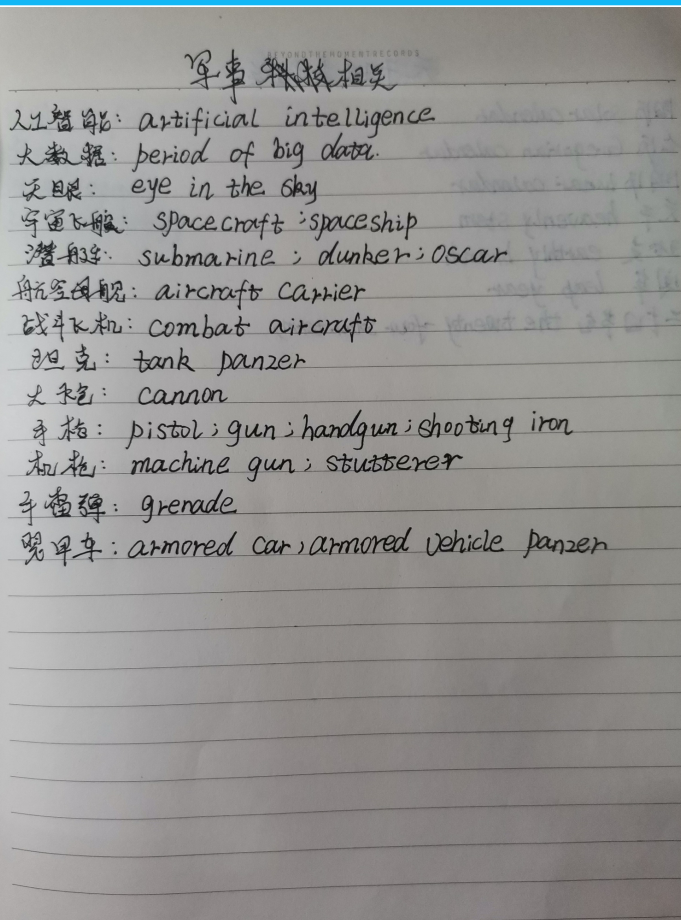 BEYONDTHEMOMENTRECORDS
军事科技相关
人工智能: artificial intelligence
大数据: period of big data.
天眼: eye in the sky
宇宙飞船: spacecraft ; spaceship
潜艇: submarine ; dunker ; oscar
航空母舰: aircraft carrier
战斗飞机: combat aircraft
坦克: tank panzer
大炮: cannon
手枪: pistol ; gun ; handgun ; shooting iron
机枪: machine gun ; stutterer
手雷弹: grenade
装甲车: armored car , armored vehicle panzer